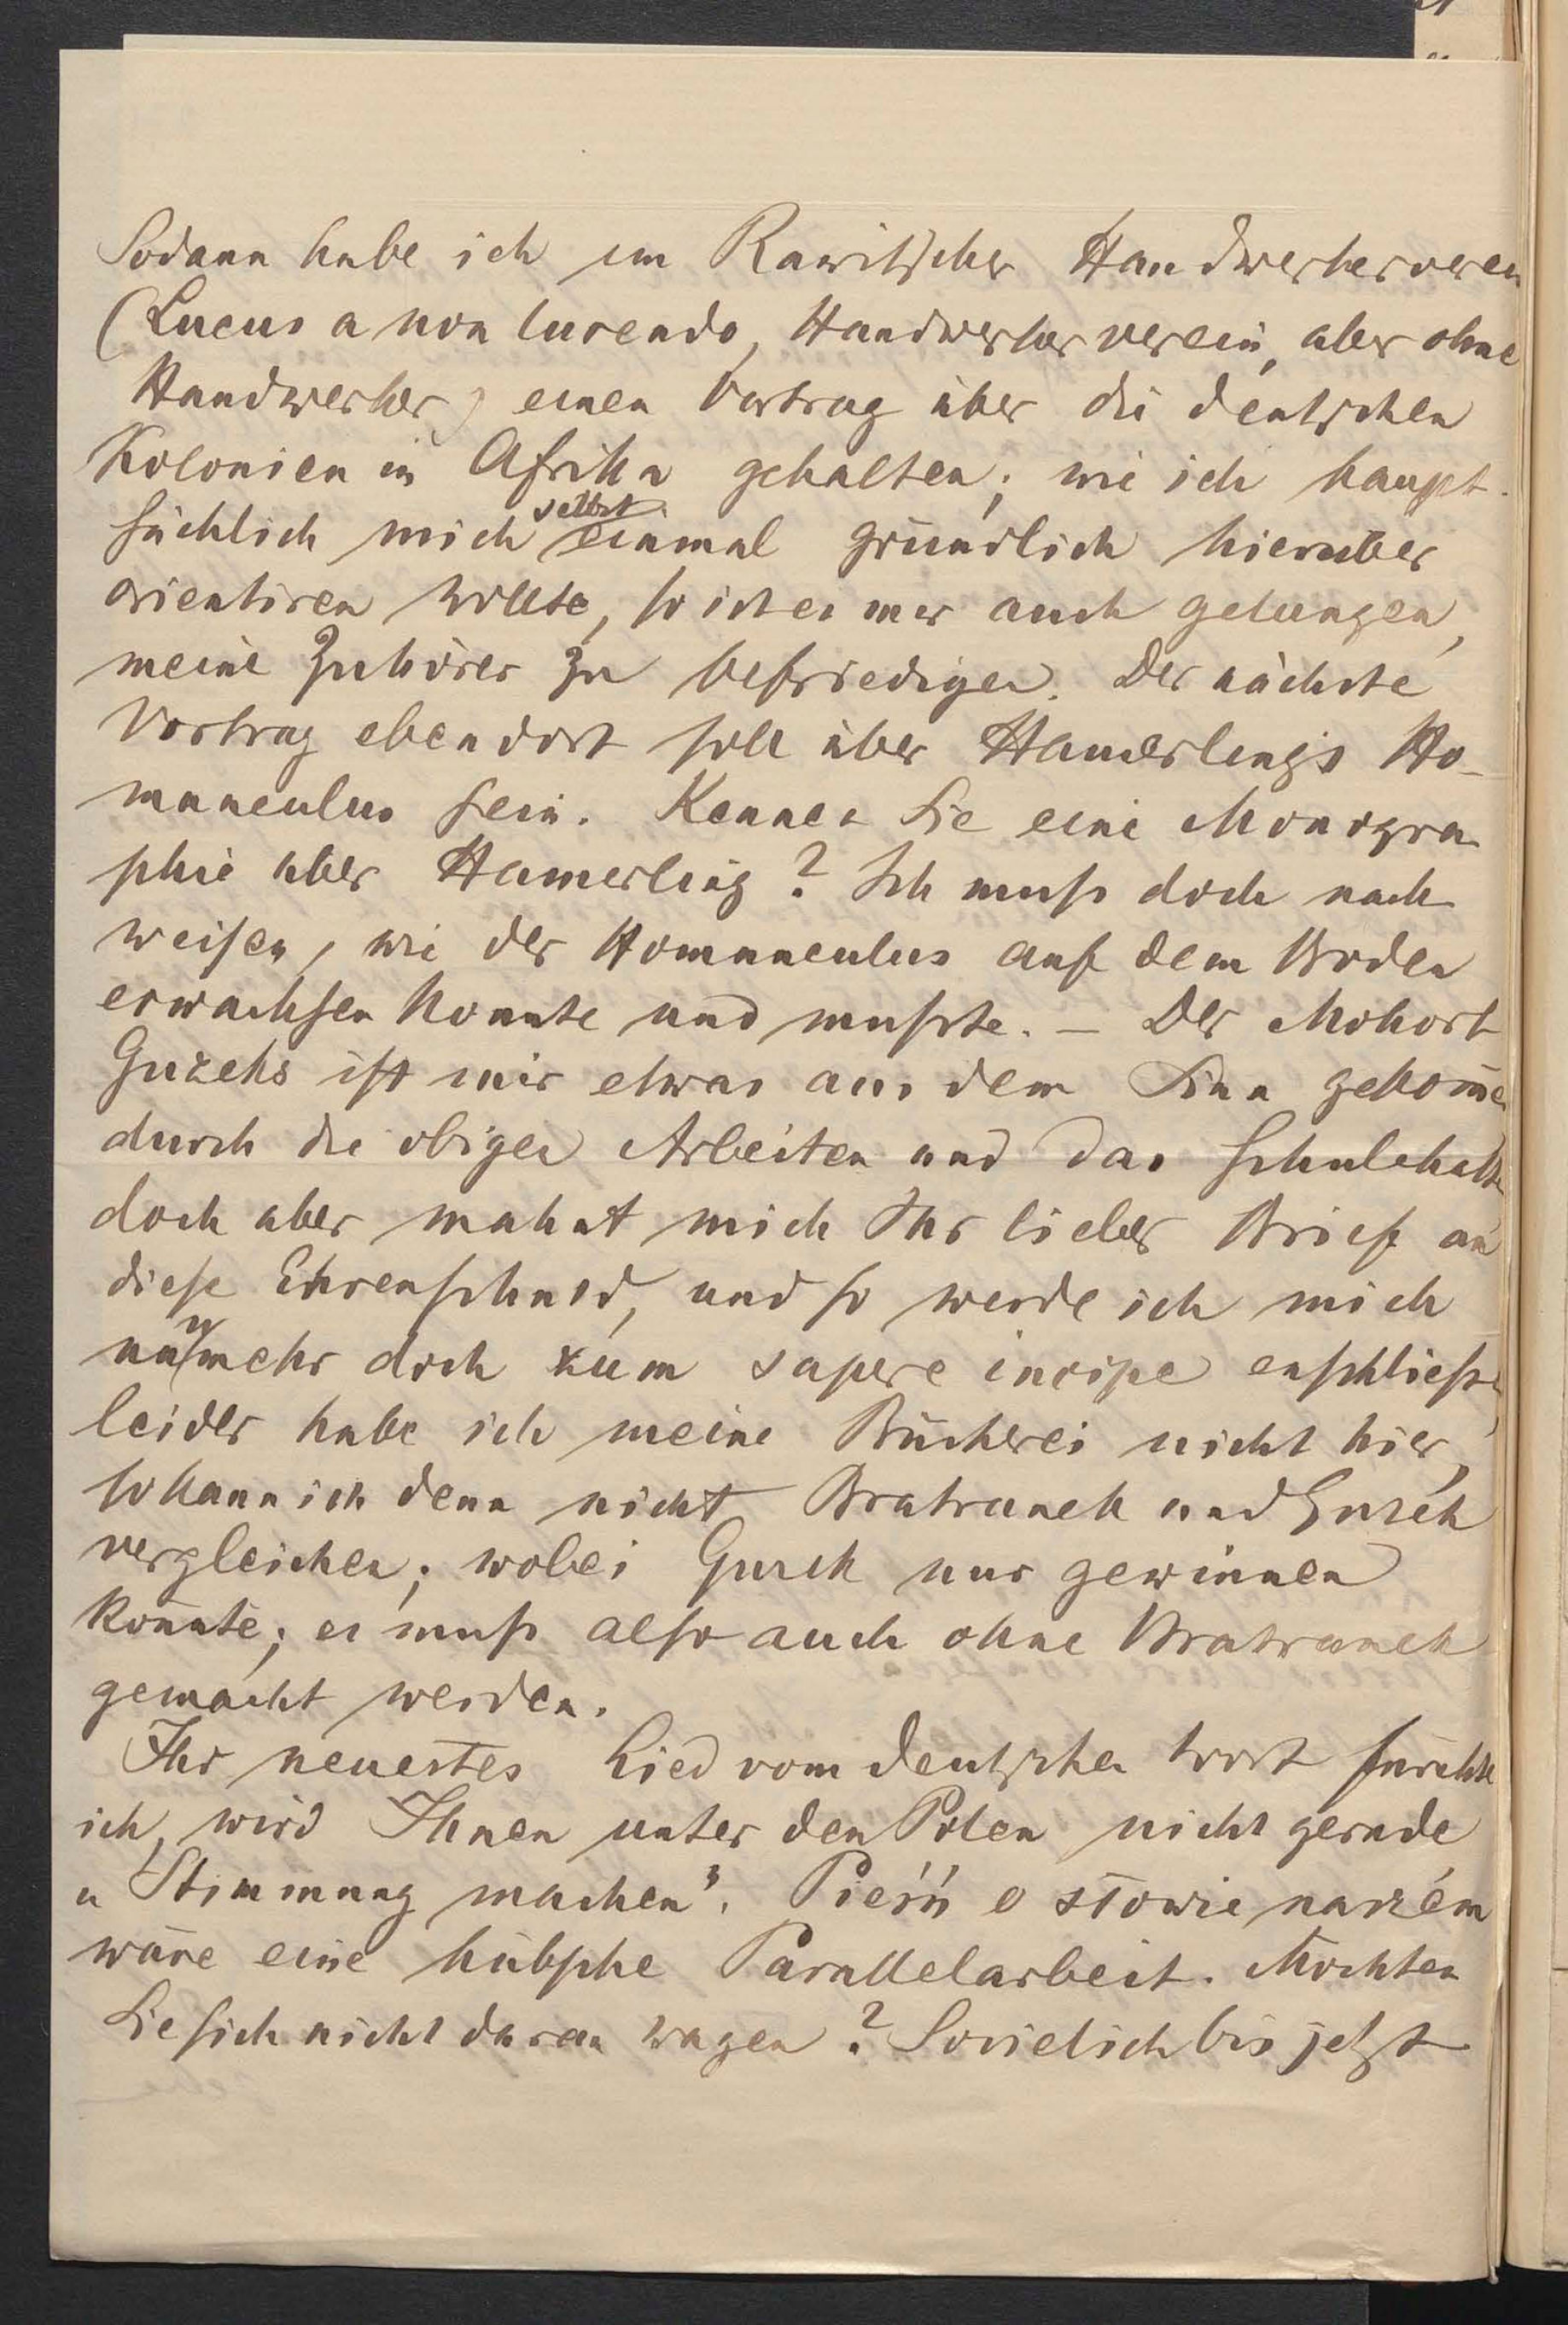 Sodann habe ich im Rawitscher Handwerkerverein
(Lucus a non lucendo, Handwerkerverein, aber ohne
Handwerker) einen Vortrag über die deutschen
Kolonien in Afrika gehalten; wie ich haupt-
sächlich mich selbst einmal gründlich hierüber
orientiren wollte, so ist es mir auch gelungen,
meine Zuhörer zu befriedigen. Der nächste
Vortrag ebendort soll über Hamerlings Ho-
munculus sein. Kennen Sie eine Monogra-
phie über Hamerling? Ich muß doch nach-
weisen, wie der Homunculus auf dem Boden
erwachsen konnte und mußte. — Der Mohort
Guzeks ist mir etwas aus dem Sinn gekom̄en
durch die obigen Arbeiten und das Schulehalten
doch aber mahnt mich Ihr lieber Brief an
diese Ehrenschuld, und so werde ich mich
nunmehr doch zum sapere incipe enschließen,
leider habe ich meine Bücherei nicht hier,
so kann ich denn nicht Bratranek und Guzek
vergleichen; wobei Guzek nur gewinnen
könnte; es muß also auch ohne Bratranek
gemacht werden.
Ihr neuestes Lied vom deutschen Wort fürchte
ich, wird Ihnen unter den Polen nicht gerade
„Stimmung machen“. Pieśń o słowie naszém
wäre eine hübsche Parallelarbeit. Möchten
Sie sich nicht daran wagen? Soviel ich bis jetzt